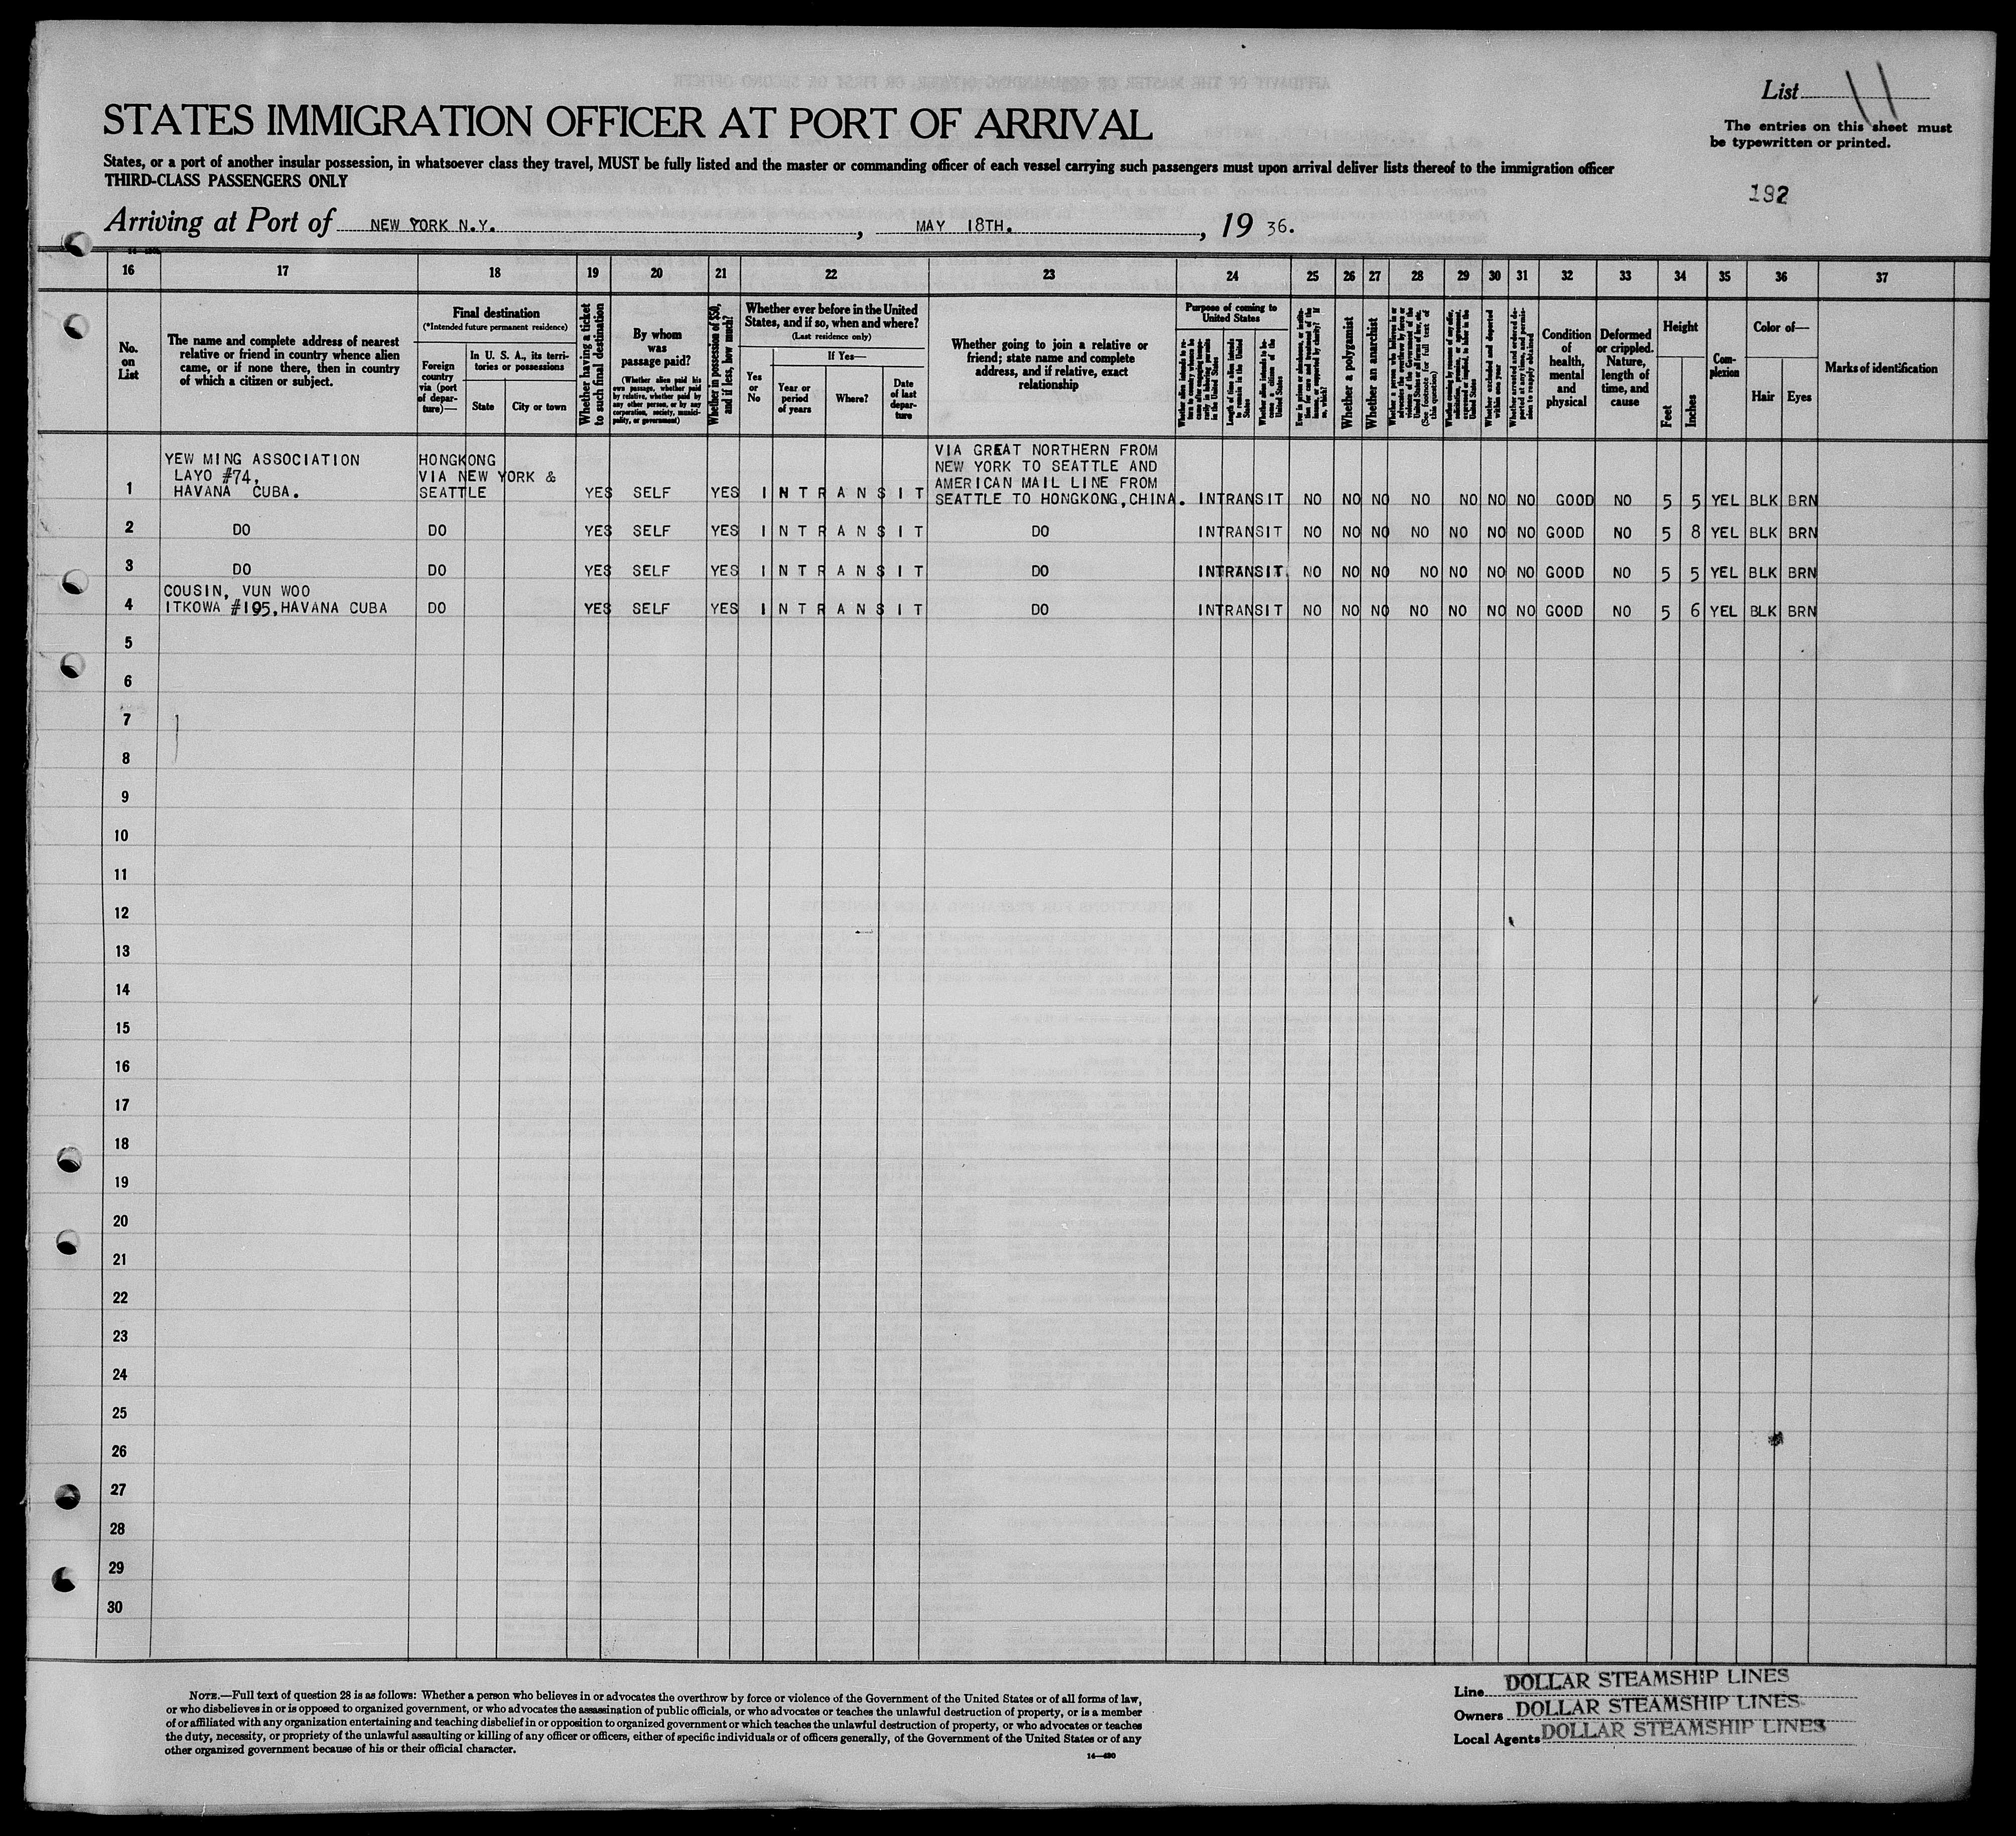 List 11
STATES IMMIGRATION OFFICER AT PORT OF ARRIVAL
The entries on this sheet must
be typewritten or printed.
States, or a port of another insular possession, in whatsoever class they travel, MUST be fully listed and the master or commanding officer of each vessel carrying such passengers must upon arrival deliver lists thereof to the immigration officer
THIRD-CLASS PASSENGERS ONLY
192
Arriving at Port of NEW YORK N.Y., MAY 18TH., 1936.
16 17 18 19 20 21 22 23 24 25 26 27 28 29 30 31 32 33 34 35 36 37
No. on List
The name and complete address of nearest
relative or friend in country whence alien
came, or if none there, then in country
of which a citizen or subject.
Final destination
(*Intended future permanent residence)
Foreign country via (port of departure)—
In U. S. A., its territories or possessions
State
City or town
Whether having a ticket to such final destination
By whom was passage paid?
(Whether alien paid his own passage, whether paid by relative, whether paid by any other person, or by any corporation, society, municipality, or government)
Whether in possession of $50, and if less, how much?
Whether ever before in the United
States, and if so, when and where?
(Last residence only)
Yes or No
If Yes—
Year or period of years
Where?
Date of last departure
Whether going to join a relative or
friend; state name and complete
address, and if relative, exact
relationship
Purpose of coming to United States
Length of time alien intends to remain in the United States
Whether alien intends to become a citizen of the United States
Whether a polygamist
Whether an anarchist
(See footnote for full text of this question)
Whether excluded and deported within one year
Condition of health, mental and physical
Deformed or crippled. Nature, length of time, and cause
Height
Feet
Inches
Complexion
Color of—
Hair
Eyes
Marks of identification
YEW MING ASSOCIATION
LAYO #74,
HAVANA CUBA.
HONGKONG
VIA NEW YORK &
SEATTLE
VIA GREAT NORTHERN FROM
NEW YORK TO SEATTLE AND
AMERICAN MAIL LINE FROM
SEATTLE TO HONGKONG, CHINA.
1 YES SELF YES INTRANSIT INTRANSIT NO NO NO NO NO NO NO GOOD NO 5 5 YEL BLK BRN
2 DO DO YES SELF YES INTRANSIT DO INTRANSIT NO NO NO NO NO NO NO GOOD NO 5 8 YEL BLK BRN
3 DO DO YES SELF YES INTRANSIT DO INTRANSIT. NO NO NO NO NO NO NO GOOD NO 5 5 YEL BLK BRN
COUSIN, VUN WOO
4 ITKOWA #195, HAVANA CUBA DO YES SELF YES INTRANSIT DO INTRANSIT NO NO NO NO NO NO NO GOOD NO 5 6 YEL BLK BRN
5
6
7
8
9
10
11
12
13
14
15
16
17
18
19
20
21
22
23
24
25
26
27
28
29
30
NOTE.—Full text of question 28 is as follows: Whether a person who believes in or advocates the overthrow by force or violence of the Government of the United States or of all forms of law,
or who disbelieves in or is opposed to organized government, or who advocates the assassination of public officials, or who advocates or teaches the unlawful destruction of property, or is a member
of or affiliated with any organization entertaining and teaching disbelief in or opposition to organized government or which teaches the unlawful destruction of property, or who advocates or teaches
the duty, necessity, or propriety of the unlawful assaulting or killing of any officer or officers, either of specific individuals or of officers generally, of the Government of the United States or of any
other organized government because of his or their official character.
14—430
Line DOLLAR STEAMSHIP LINES
Owners DOLLAR STEAMSHIP LINES
Local Agents DOLLAR STEAMSHIP LINES